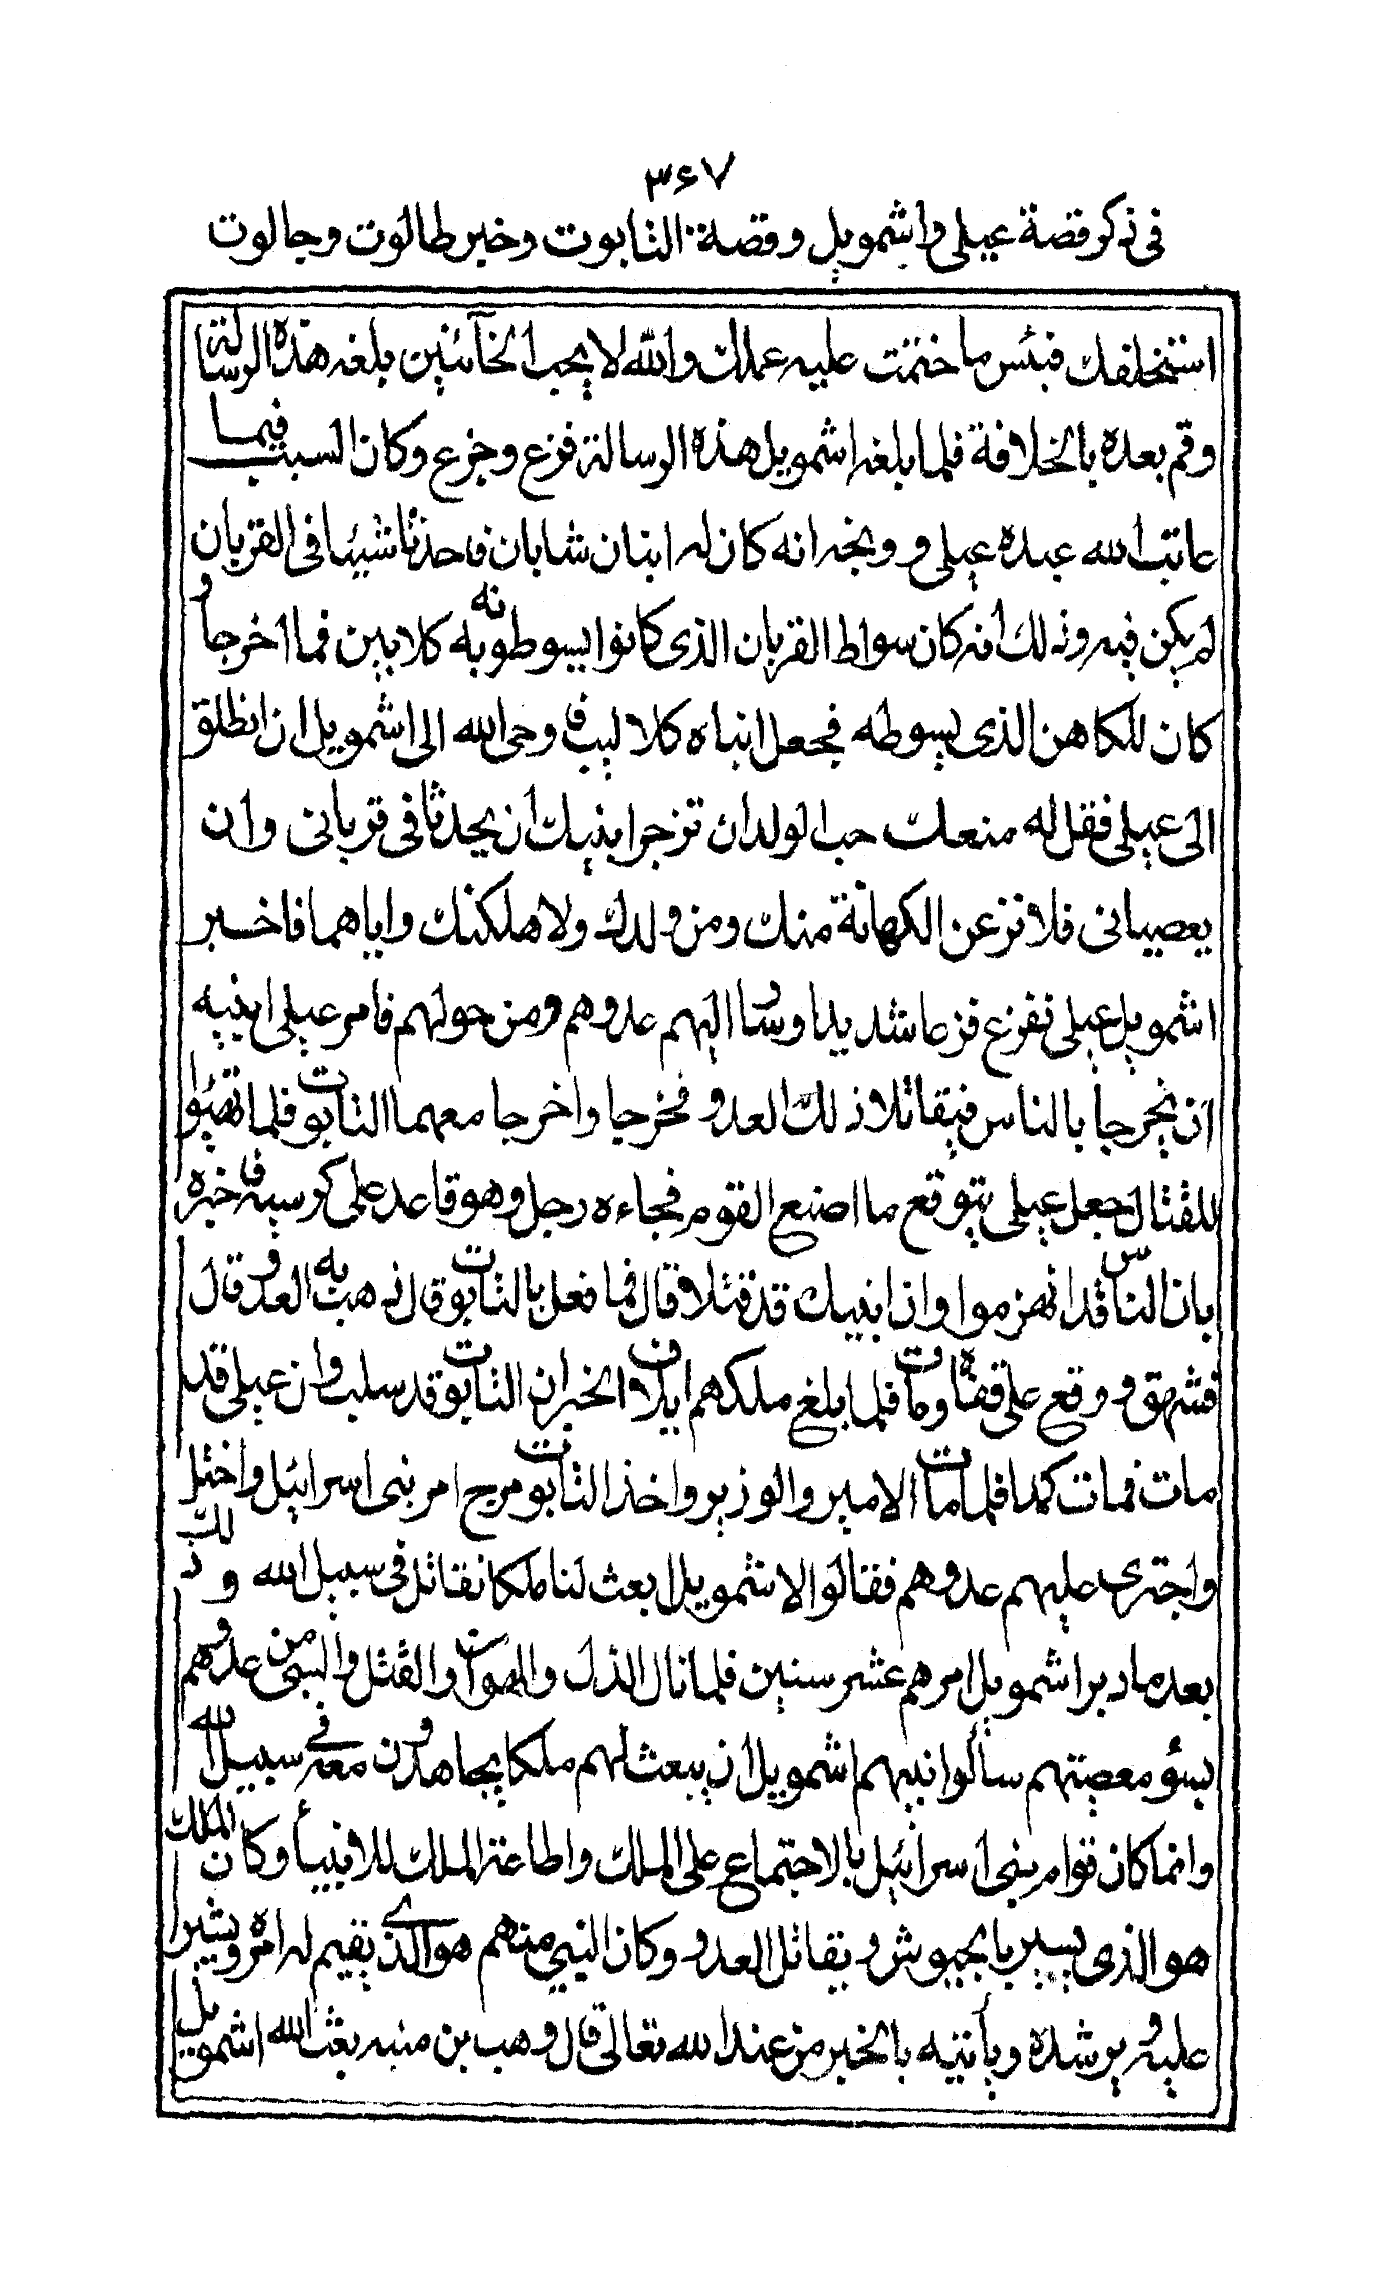 ٣٤٧
في ذكر قصة عيلى واشمويل وقصة التابوت وخبر طالوت وجالوت
استخلفك فبئس ما ختمت عليه عملك والله لا يحب الخآئنين بلغه هذه الرسالة
وقم بعده بالخلافة فلما بلغه اشمويل هذه الرسالة فزع وجزع وكان السبب فيما
عاتب الله عبده عيلى و وبخه انه كان له ابنان شابان فاحدثا شيئا في القربان
لم يكن فيه وذلك انه كان سواط القربان الذى كانوا يسوطونه به كلابين فما اخرجا و
كان للكاهن الذى يسوطه فجعل ابناه كلاليب فاوحى الله الى اشمويل ان انطلق
الى عيلى فقل له منعك حب الولدان تزجرا بنيك ان يحدثا في قربانى وان
يعصيانى فلانزعن الكهانة منك ومن ولدك ولاهلكنك واياهما فاخبر
اشمويل عيلى ففزع فزعا شديدا وسار اليهم عدوهم ومن حولهم فامر عيلى ابنيه
ان يخرجا بالناس فيقاتلا ذلك العدو فخرجا واخرجا معهما التابوت فلما تهيئوا
للقتال جعل عيلى يتوقع ما اصنع القوم فجاءه رجل وهو قاعد على كرسيه فاخبره
بان الناس قد انهزموا وان ابنيك قد قتلا قال فما فعل بالتابوت قال ذهب به العدو قال
فشهق و وقع على قفاه ومات فلما بلغ ملكهم ايلان الخبر ان التابوت قد سلب وان عيلى قد
مات فمات كمدا فلما مات الامير والوزير واخذ التابوت مرج امر بنى اسرائيل واختل
واجترى عليهم عدوهم فقالوا لاشمويل ابعث لنا ملكا نقاتل في سبيل الله وذلك
بعد ما دبر اشمويل امرهم عشر سنين فلما نال الذل والهوان والقتل والسبى من عدوهم
بسؤ معصيتهم سألوا نبيهم اشمويل ان يبعث لهم ملكا يجاهدون معه في سبيل الله
وانما كان قوام بنى اسرائيل بالاجتماع على الملك واطاعة الملك للانبيأ وكان الملك
هو الذى يسير بالجيوش و يقاتل العدو وكان النبي منهم هو الذي يقيم له امره ويشير
عليه و يرشده ويأتيه بالخبر من عند الله تعالى قال وهب بن منبه بعث الله اشمويل